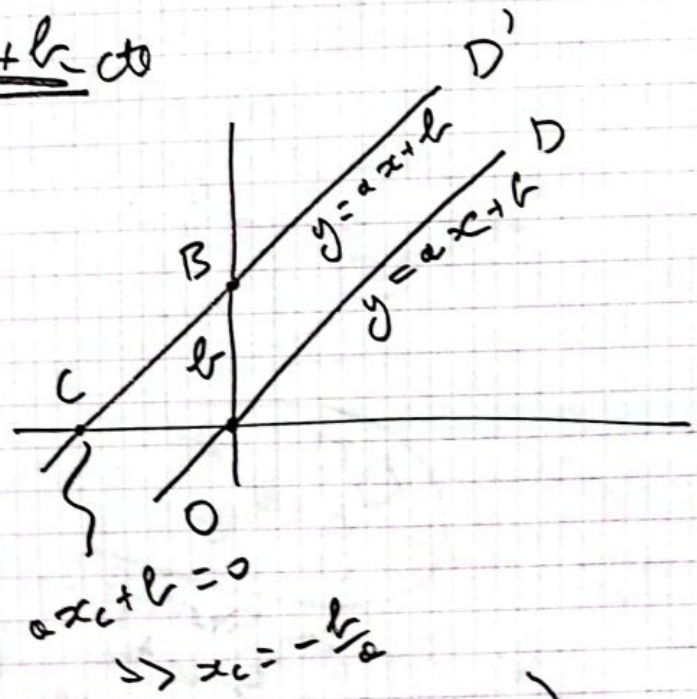 +b cte
D'
D
y = ax + b
y = ax + b
B
b
C
O
axc + b = 0
>> xc = -b/a